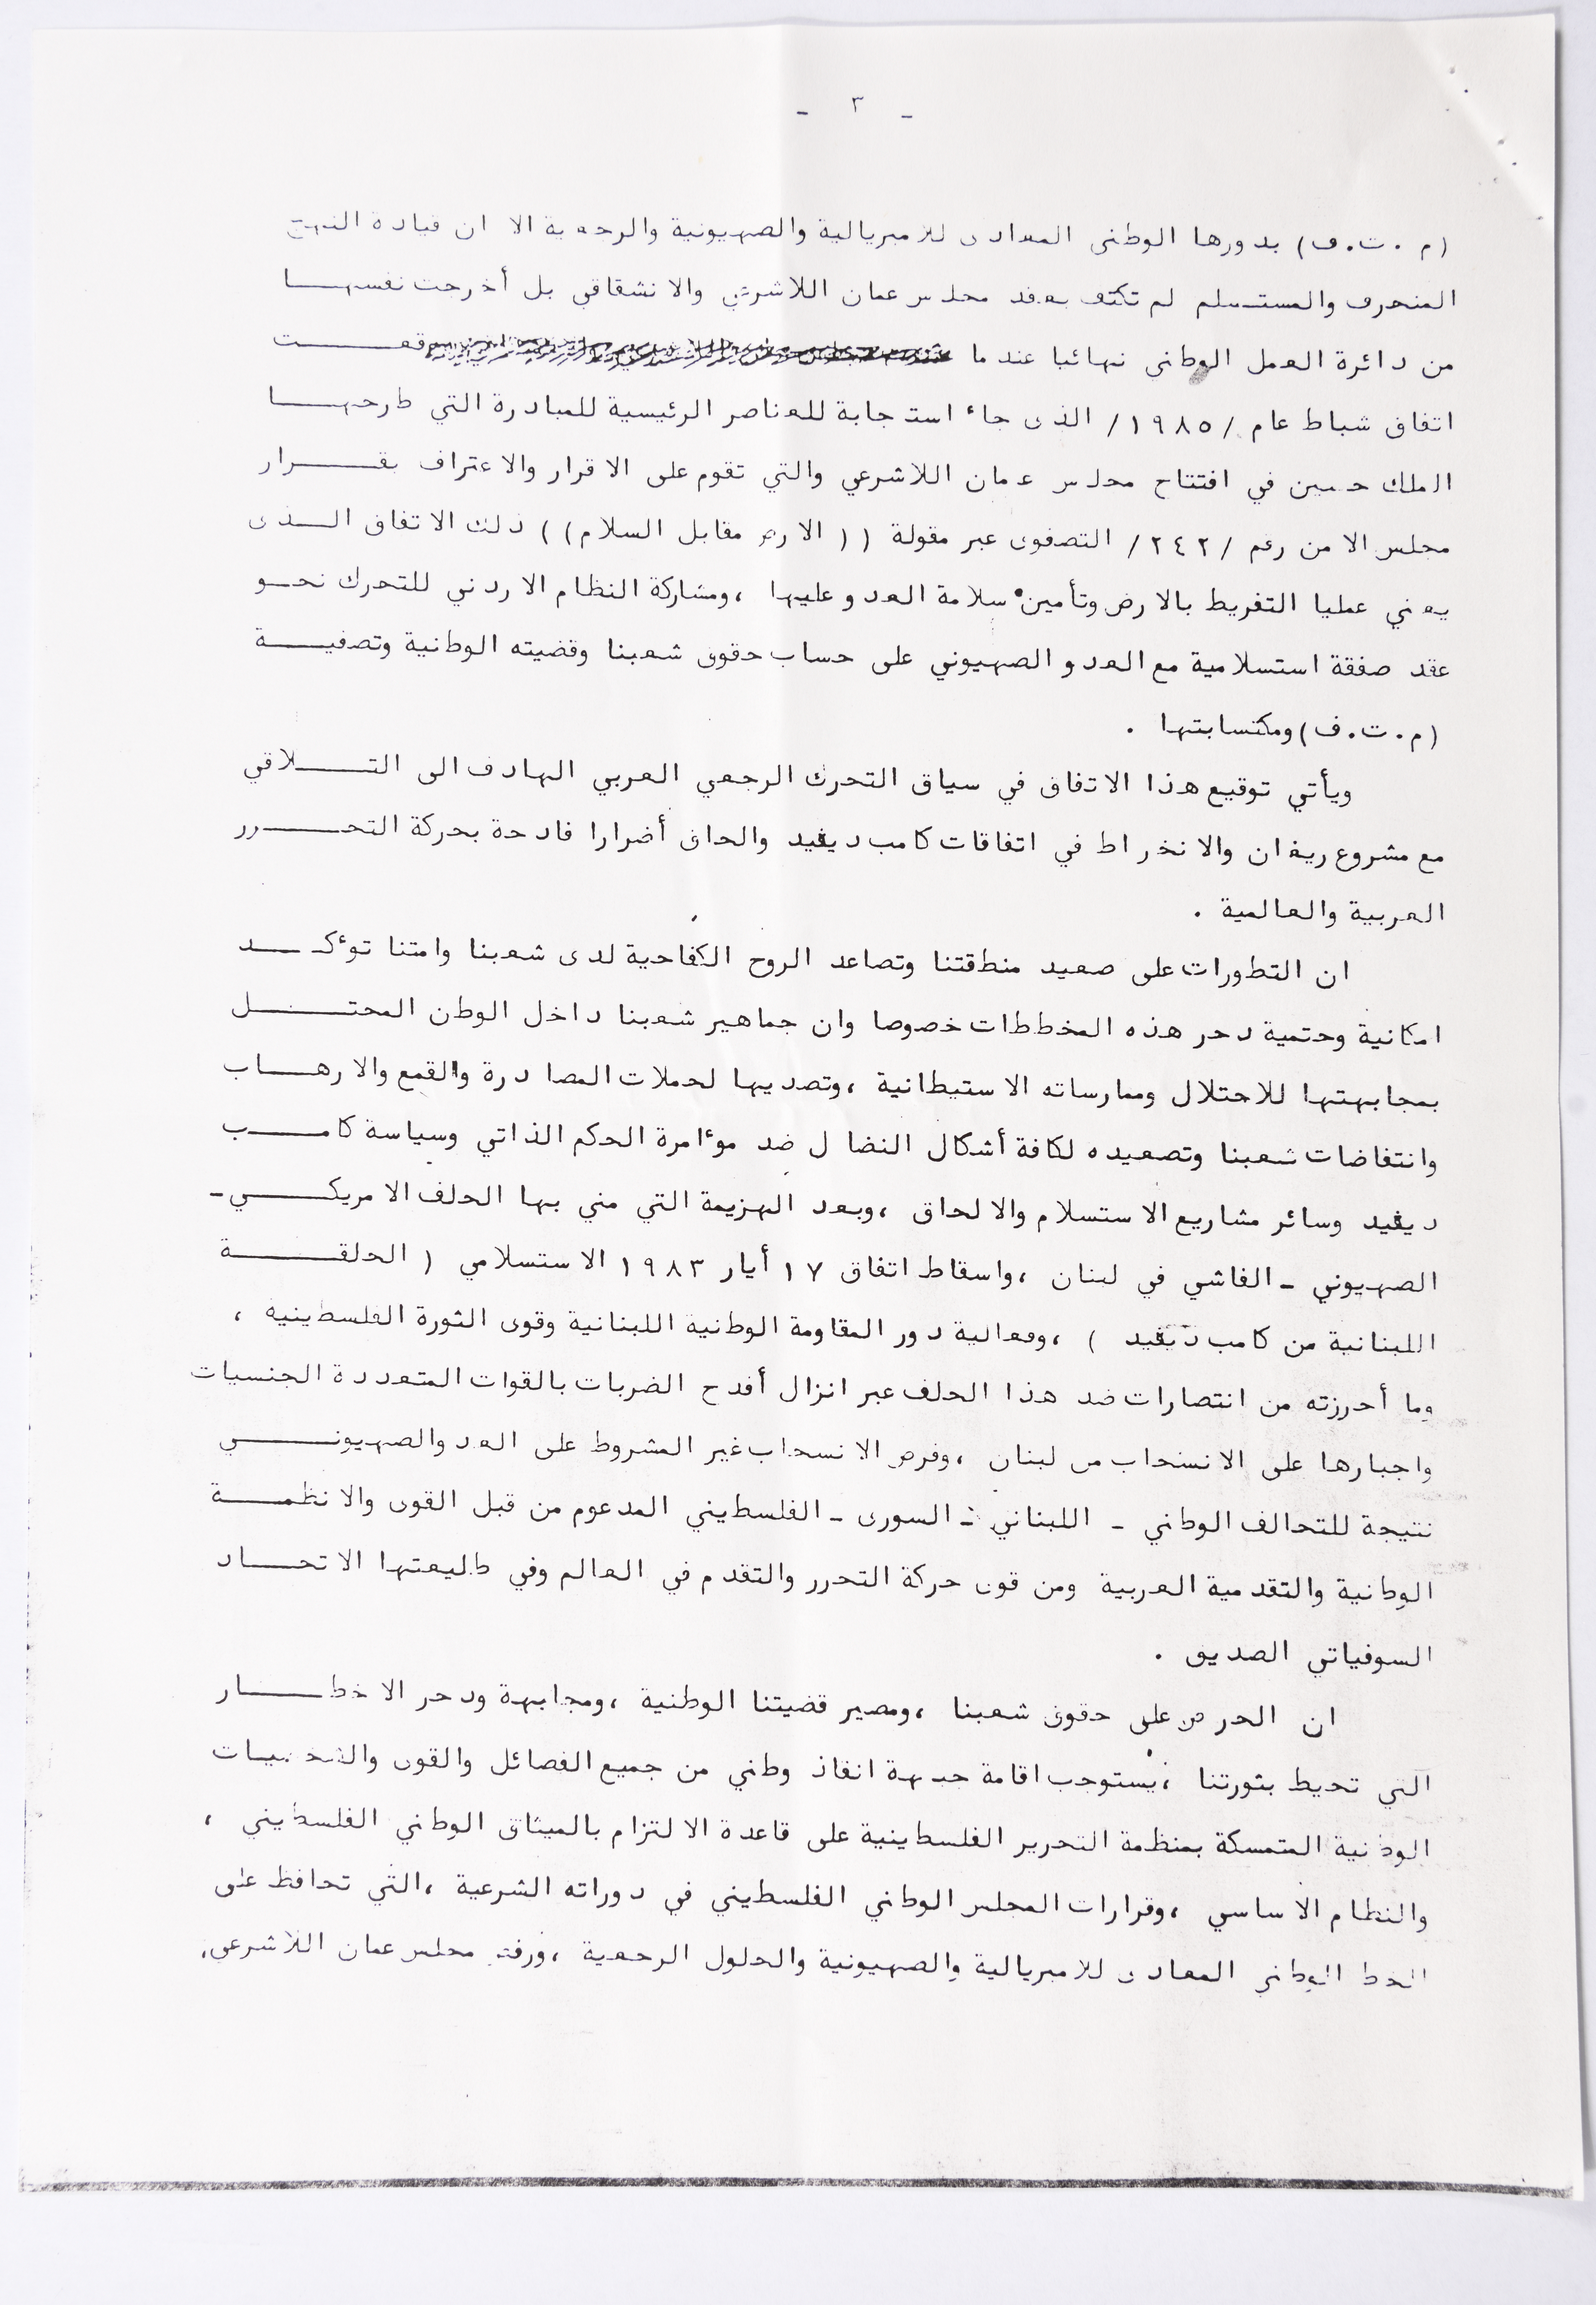 - ٣ -
(م.ت.ف) بدورها الوطني المعادى للامبريالية والصهيونية والرجعية الا ان قيادة النهج
المنحرف والمستسلم لم تكتف بعقد مجلس عمان اللاشرعي والانشقاقي بل أخرجت نفسهـــا
من دائرة العمل الوطني نهائيا عندما وقعـــت
اتفاق شباط عام /١٩٨٥/ الذى جاء استجابة للعناصر الرئيسية للمبادرة التي طرحهـــا
الملك حسين في افتتاح مجلس عمان اللاشرعي والتي تقوم على الاقرار والاعتراف بقـــرار
مجلس الامن رقم /٢٤٢/ التصفوى عبر مقولة (( الارض مقابل السلام)) ذلك الاتفاق الــذى
يعني عمليا التفريط بالارض وتأمين سلامة العدو عليها ،ومشاركة النظام الاردني للتحرك نحــو
عقد صفقة استسلامية مع العدو الصهيوني على حساب حقوق شعبنا وقضيته الوطنية وتصفيـــة
(م.ت.ف) ومكتسابتها .
ويأتي توقيع هذا الاتفاق في سياق التحرك الرجعي العربي الهادف الى التـــلاقي
مع مشروع ريغان والانخراط في اتفاقات كامب ديفيد والحاق أضرارا فادحة بحركة التحـــرر
العربية والعالمية .
ان التطورات على صعيد منطقتنا وتصاعد الروح الكفاحية لدى شعبنا وامتنا توءكـــد
امكانية وحتمية دحر هذه المخططات خصوصا وان جماهير شعبنا داخل الوطن المحتـــل
بمجابهتها للاحتلال وممارساته الاستيطانية ،وتصديها لحملات المصادرة والقمع والارهـــاب
وانتفاضات شعبنا وتصعيده لكافة أشكال النضال ضد موءامرة الحكم الذاتي وسياسة كامـــب
ديفيد وسائر مشاريع الاستسلام والالحاق ،وبعد الهزيمة التي مني بها الحلف الامريكـــي-
الصهيوني - الفاشي في لبنان ،واسقاط اتفاق ١٧ أيار ١٩٨٣ الاستسلامي ( الحلقـــة
اللبنانية من كامب ديفيد ) ،وفعالية دور المقاومة الوطنية اللبنانية وقوى الثورة الفلسطينيه ،
وما أحرزته من انتصارات ضد هذا الحلف عبر انزال أفدح الضربات بالقوات المتعددة الجنسيات
واجبارها على الانسحاب من لبنان ،وفرض الانسحاب غير المشروط على العدو الصهيونـــي
نتيجة للتحالف الوطني - اللبناني - السورى - الفلسطيني المدعوم من قبل القوى والانظمـــة
الوطانية والتقدمية العربية ومن قوى حركة التحرر والتقدم في العالم وفي طليعتها الاتحـــاد
السوفياتي الصديق .
ان الحرص على حقوق شعبنا ،ومصير قضيتنا الوطنية ،ومجابهة ودحر الاخطـــار
التي تحيط بثورتنا ،يستوجب اقامة جبهة انقاذ وطني من جميع الفصائل والقوى والشخصيات
الوطنية المتمسكة بمنظمة التحرير الفلسطينية على قاعدة الالتزام بالميثاق الوطني الفلسطيني ،
والنظام الاساسي ،وقرارات المجلس الوطني الفلسطيني في دوراته الشرعية ،التي تحافظ على
الخط الوطني المعادى للامبريالية والصهيونية والحلول الرجعية ،ورفض مجلس عمان اللاشرعي،